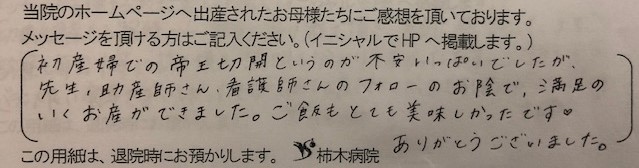 当院のホームページへ出産されたお母様たちにご感想を頂いております。
メッセージを頂ける方はご記入ください。(イニシャルでHPへ掲載します。)
初産婦での帝王切開というのが不安いっぱいでしたが、
先生、助産師さん、看護師さんのフォローのお陰で、満足の
いくお産ができました。ご飯もとても美味しかったです♡
ありがとうございました。
この用紙は、退院時にお預かりします。 柿木病院